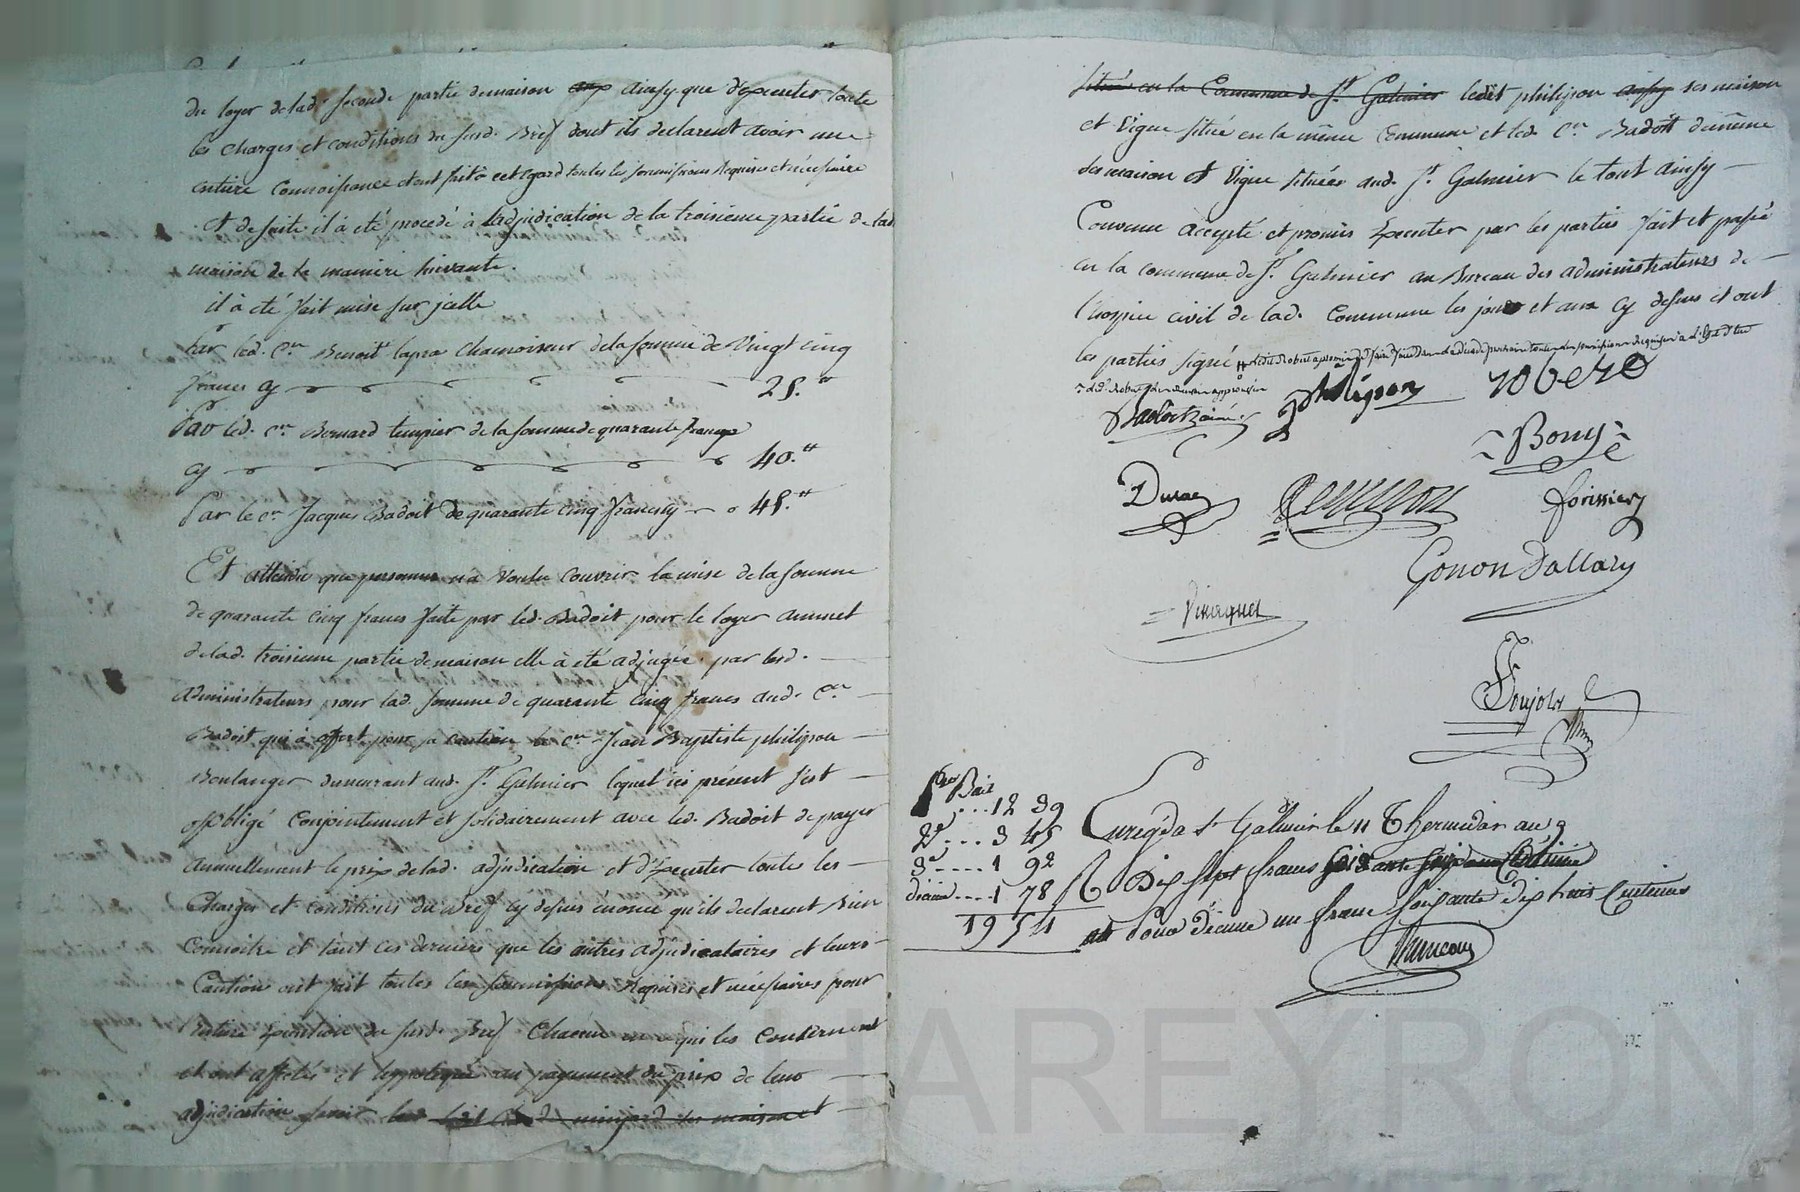 du loyer de lad. seconde partie de maison ainsy que d'Executer toute
les charges et conditions du susd. Bref dont ils declarent avoir une
entiere Connoissance et ont fait à cet egard toutes les soumissions Requises et nécessaire
Et de suite il à eté procedé à l'adjudication de la troisieme partie de lad
maison de la maniere suivante.
il à eté fait mise sur jcelle
Par led. Cen Benoit lapra Chamoiseur de la somme de Vingt cinq
francs cy 25.tt
Par led. Cen Bernard tempier de la somme de quarante francs
cy 40.tt
Par le Cen Jacques Badoit de quarante cinq francs cy 45.tt
Et attendu que personne n'a Voulu Couvrir la mise de la somme
de quarante cinq francs faite par led. Badoit pour le loyer annuel
de lad. troisieme partie de maison elle à eté adjugée par lesd.
administrateurs pour lad. somme de quarante cinq francs aud. Cen
Badoit qui à offert pour sa caution le Cen Jean Baptiste philipon
Boulanger demeurant aud. St. Galmier lequel ici présent s'est
obligé Conjointement et solidairement avec led. Badoit de payer
annuellement le prix de lad. adjudication et d'Executer toutes les
Charges et conditions du Bref cy dessus énoncé qu'ils declarent Bien
Connoitre et tant ces derniers que les autres adjudicataires et leurs
Caution ont fait toutes les soumissions Requises et nécessaires pour
entiere Execution du susd. Bref Chacun en ce qui les Concernent
et ont affectés et hyppotequé au payement du prix de leur
adjudication savoir
située en la Commune de St. Galmier ledit philipon ses maison
et Vigne située en la même Commune et led. Cen Badoit de même
ses maison et Vigne situées aud. St. Galmier le tout ainsy
Convenu accepté et promis Executer par les parties fait et passé
en la commune de St. Galmier au Bureau des administrateurs de
l'hospice civil de lad. Commune les jour et an cy dessus et ont
les parties signé
Badoit ph̃ilipon robert
Bony
Duvac forissier
Gonon Dallary
Poujolx
1er Bail
...12 39
2e...3 45
3e....1 92
dixieme....1 78
19 54
Enregé a St Galmier le 11 Thermidor an 9
R Dix sept francs
Pour Décime un franc soixante dix huit Centimes
HAREYRON